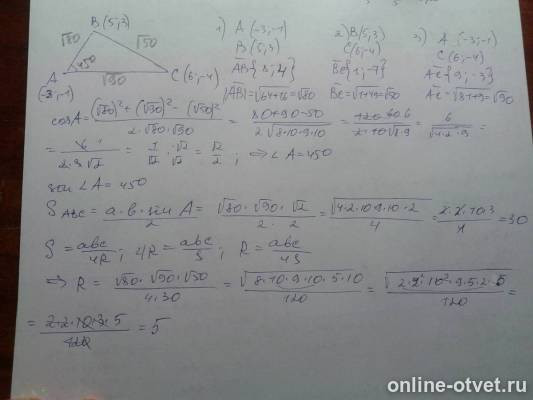 B(5;3)
√80 √50
45°
A √90 C(6;-4)
(-3;-1)
1) A (-3;-1)
B(5;3)
AB{8;4}
|AB|=√64+16=√80
2) B(5;3)
C(6;-4)
BC{1;-7}
BC=√1+49=√50
3) A (-3;-1)
C(6;-4)
AC{9;-3}
AC=√81+9=√90
cosA= (√80)²+(√90)²-(√50)² / 2·√80·√90 = 80+90-50 / 2√8·10·9·10 = 120 / 2·10√8·9 = 6 / √4·2·9 =
= 6 / 2·3√2 = 1/√2 · √2/√2 = √2/2 ; ⇒ ∠A=45°
sin ∠A=45°
S ABC = a·b·sin A / 2 = √80·√90·√2 / 2·2 = √4·2·10·9·10·2 / 4 = 2·2·10·3 / 4 = 30
S = abc/4R ; 4R = abc/S ; R = abc/4S
⇒ R = √80·√90·√50 / 4·30 = √8·10·9·10·5·10 / 120 = √2·2²·10²·9·5·2·5 / 120 =
= 2·2·10·3·5 / 120 = 5
online-otvet.ru